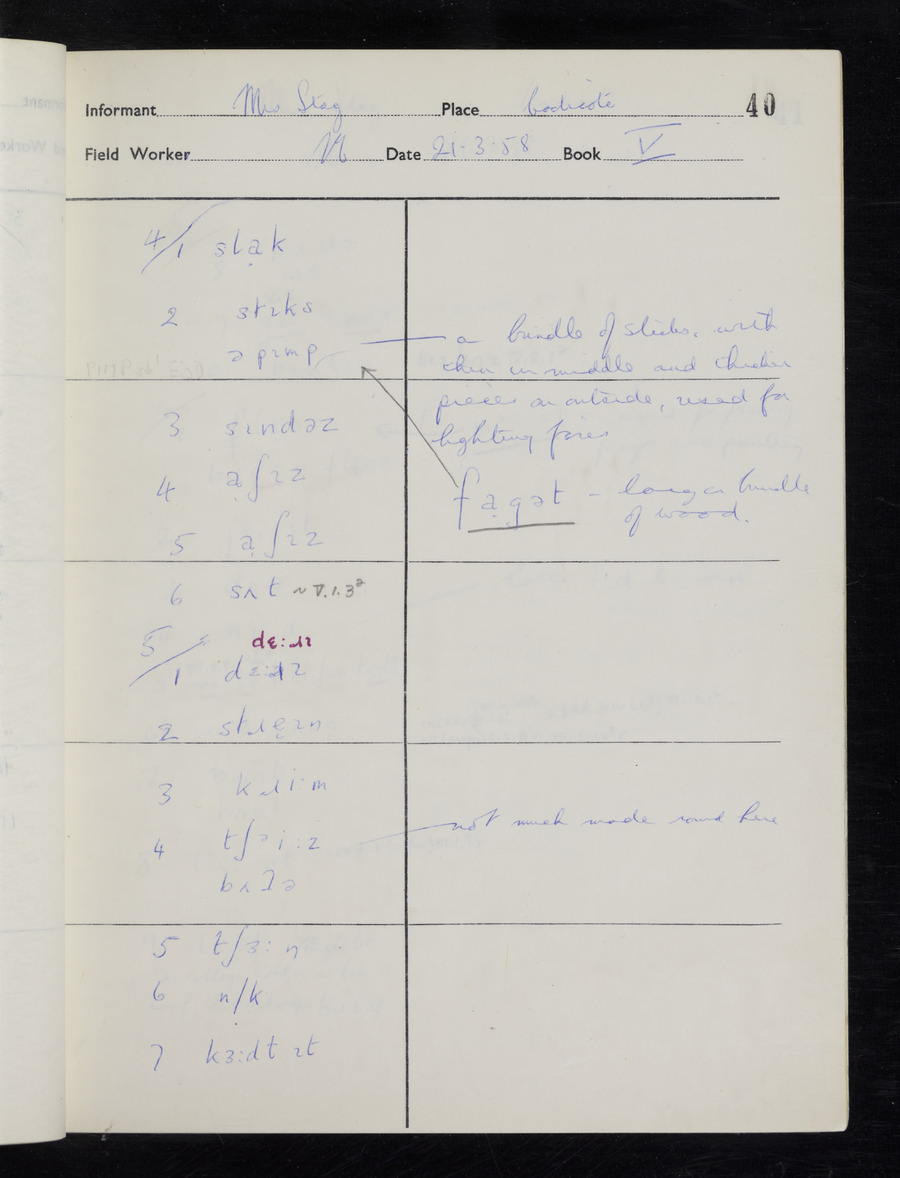 Informant Mrs Stag Place Codicote 40
Field Worker Date 21-3-58 Book V
4/1 slạk
2 stɪks
ə pɪmp
a bundle of sticks, with
thin in middle and thicker
pieces on outside, used for
lighting fires
3 sɪndəz
4 ạʃɪz
fạgət - larger bundle
of wood.
5 ạʃɪz
6 sʌt ~ V.1.3²
dɛ:ɹɪ
5/1 dɛ:ɹɪ
2 stɹẹɪn
3 kɹi:m
4 tʃəi:z
not much made round here
bʌʔə
5 tʃɜ:n
6 n/k
7 kɜ:dt ɪt